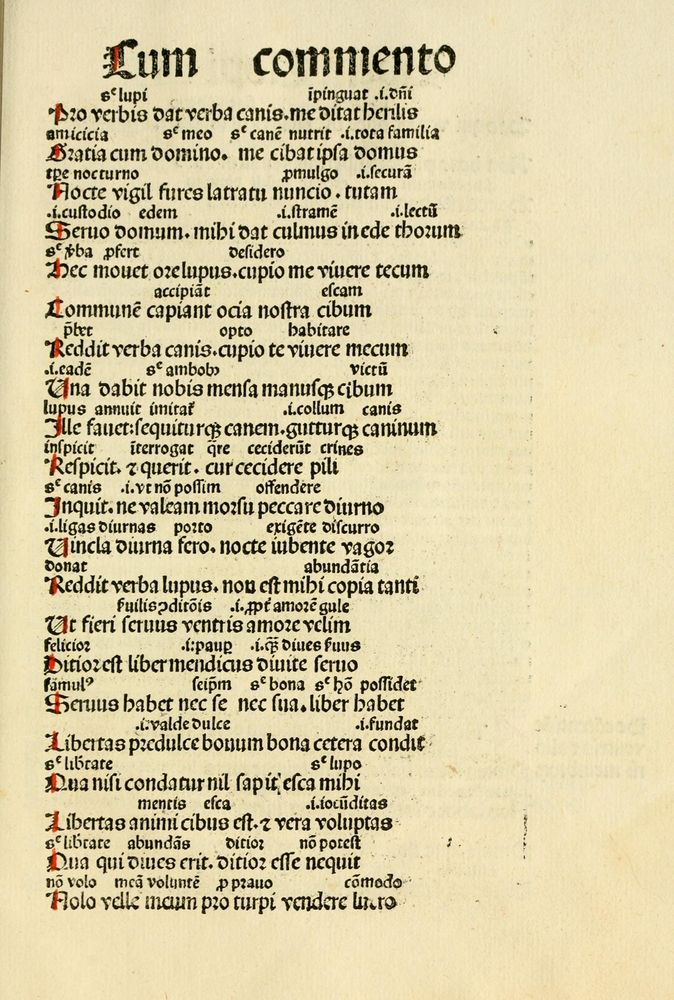 Cum commento
sᶜ lupi īpinguat .i.dñi
Pro verbis dat verba canis.me ditat herilis
amicicia sᶜ meo sᶜ canē nutrit .i.tota familia
Gratia cum domino. me cibat ipsa domus
tꝑe nocturno ꝓmulgo .i.securā
Nocte vigil fures latratu nuncio. tutam
.i.custodio edem .i.stramē .i.lectū
Seruo domum. mihi dat culmus in ede thorum
sᶜ v̄ba ꝓfert desidero
Hec mouet ore lupus.cupio me viuere tecum
accipiāt escam
Communē capiant ocia nostra cibum
p̄bet opto habitare
Reddit verba canis.cupio te viuere mecum
.i.eadē sᶜ amboꝫ victū
Una dabit nobis mensa manusqꝫ cibum
lupus annuit imitat᷑ .i.collum canis
Ille fauet:sequiturqꝫ canem.gutturqꝫ caninum
inspicit īterrogat q̄re ceciderūt crines
Respicit. ⁊ querit. cur cecidere pili
sᶜ canis .i.vt nō possim offendere
Inquit. ne valeam morsu peccare diurno
.i.ligas diurnas porto exigēte discurro
Uincla diurna fero. nocte iubente vagor
donat abundātia
Reddit verba lupus. non est mihi copia tanti
ẜuilis ꝯditōis .i.ꝓpt᷑ amorē gule
Ut fieri seruus ventris amore velim
felicior .i:paupꝑ .i.qꝫ̄ diues ẜuus
Ditior est liber mendicus diuite seruo
famulꝰ seip̄m sᶜ bona sᶜ hō possidet
Seruus habet nec se nec sua.liber habet
.i:valde dulce .i.fundat
Libertas predulce bonum bona cetera condit
sᶜ lib̄rtate sᶜ lupo
Qua nisi condatur nil sapit esca mihi
mentis esca .i.iocūditas
Libertas animi cibus est.⁊ vera voluptas
sᶜ lib̄rtate abundās ditior nō potest
Qua qui diues erit. ditior esse nequit
nō volo meā voluntē ꝓ prauo cōmodo
Nolo velle meum pro turpi vendere lucro